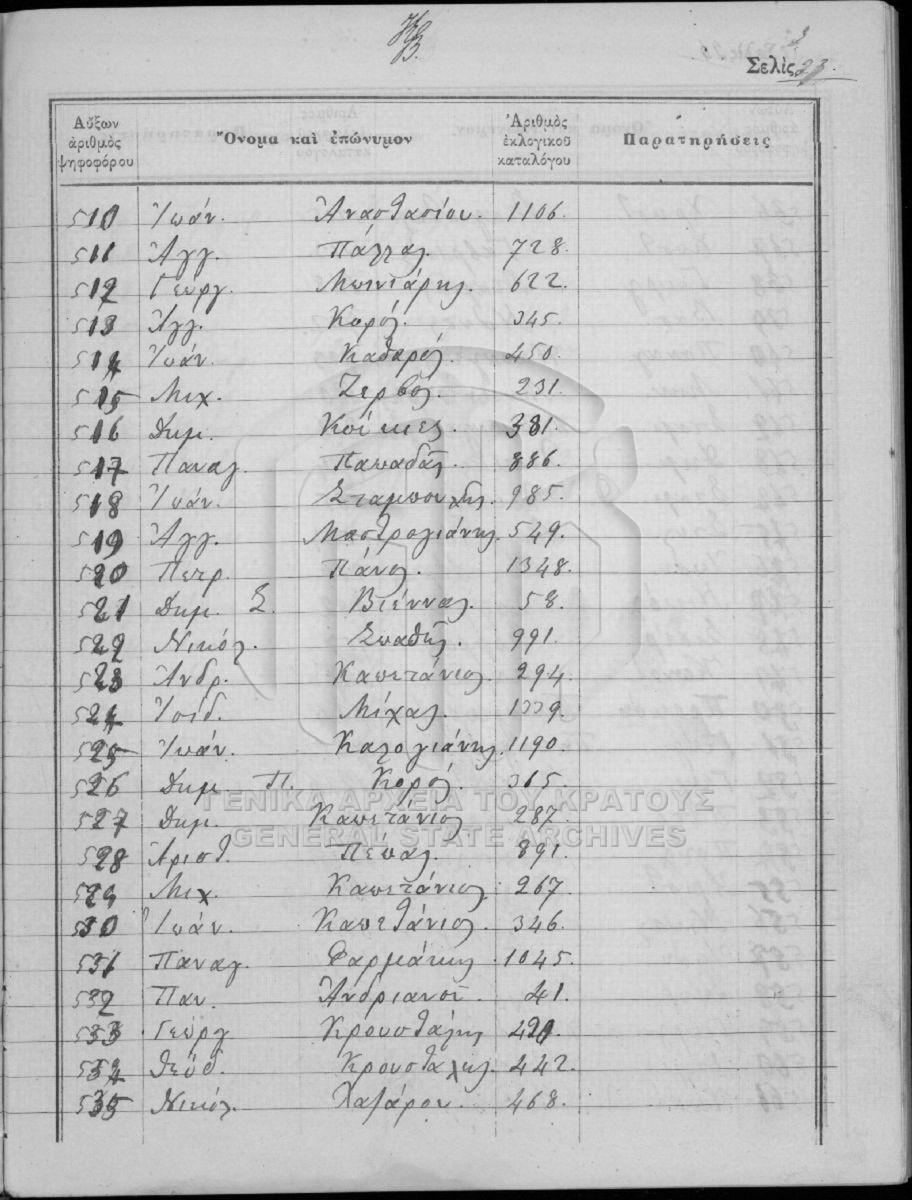 Σελὶς 23.
Αὔξων ἀριθμὸς ψηφοφόρου Ὄνομα καὶ ἐπώνυμον Ἀριθμὸς ἐκλογικοῦ καταλόγου Παρατηρήσεις
510 Ἰωάν. Ἀναστασίου. 1106.
511 Ἀγγ. Πάλλας. 728.
512 Γεώργ. 622.
513 Ἀγγ. Κορός. 345.
514 Ἰωάν. Καθαρός. 450.
515 Μιχ. Ζερβός. 231.
516 Δημ. 381.
517 Παναγ. Παπαδᾶς. 886.
518 Ἰωάν. 985.
519 Ἀγγ. Μαστρογιάννης. 549.
520 Πετρ. Πάνος. 1348.
521 Δημ. Σ. Βιέννας. 58.
522 Νικόλ. Σπαθῆς. 991.
523 Ἀνδρ. Καπετάνιος. 294.
524 Ἰσίδ. Μίχας.
525 Ἰωάν. Καλογιάνης. 1190.
526 Δημ. Π. Κορός. 365.
527 Δημ. Καπετάνιος 287.
528 Ἀριστ. Πέπας. 891.
529 Μιχ. Καπετάνιος. 267.
530 Ἰωάν. Καπετάνιος. 346.
531 Παναγ. Φαρμάκης 1045.
532 Παν. Ἀνδριανοῦ. 41.
533 Γεώργ Κρουστάλης
534 Θεόδ. Κρουστάλης. 442.
535 Νικόλ. Λαζάρου. 468.
ΓΕΝΙΚΑ ΑΡΧΕΙΑ ΤΟΥ ΚΡΑΤΟΥΣ
GENERAL STATE ARCHIVES